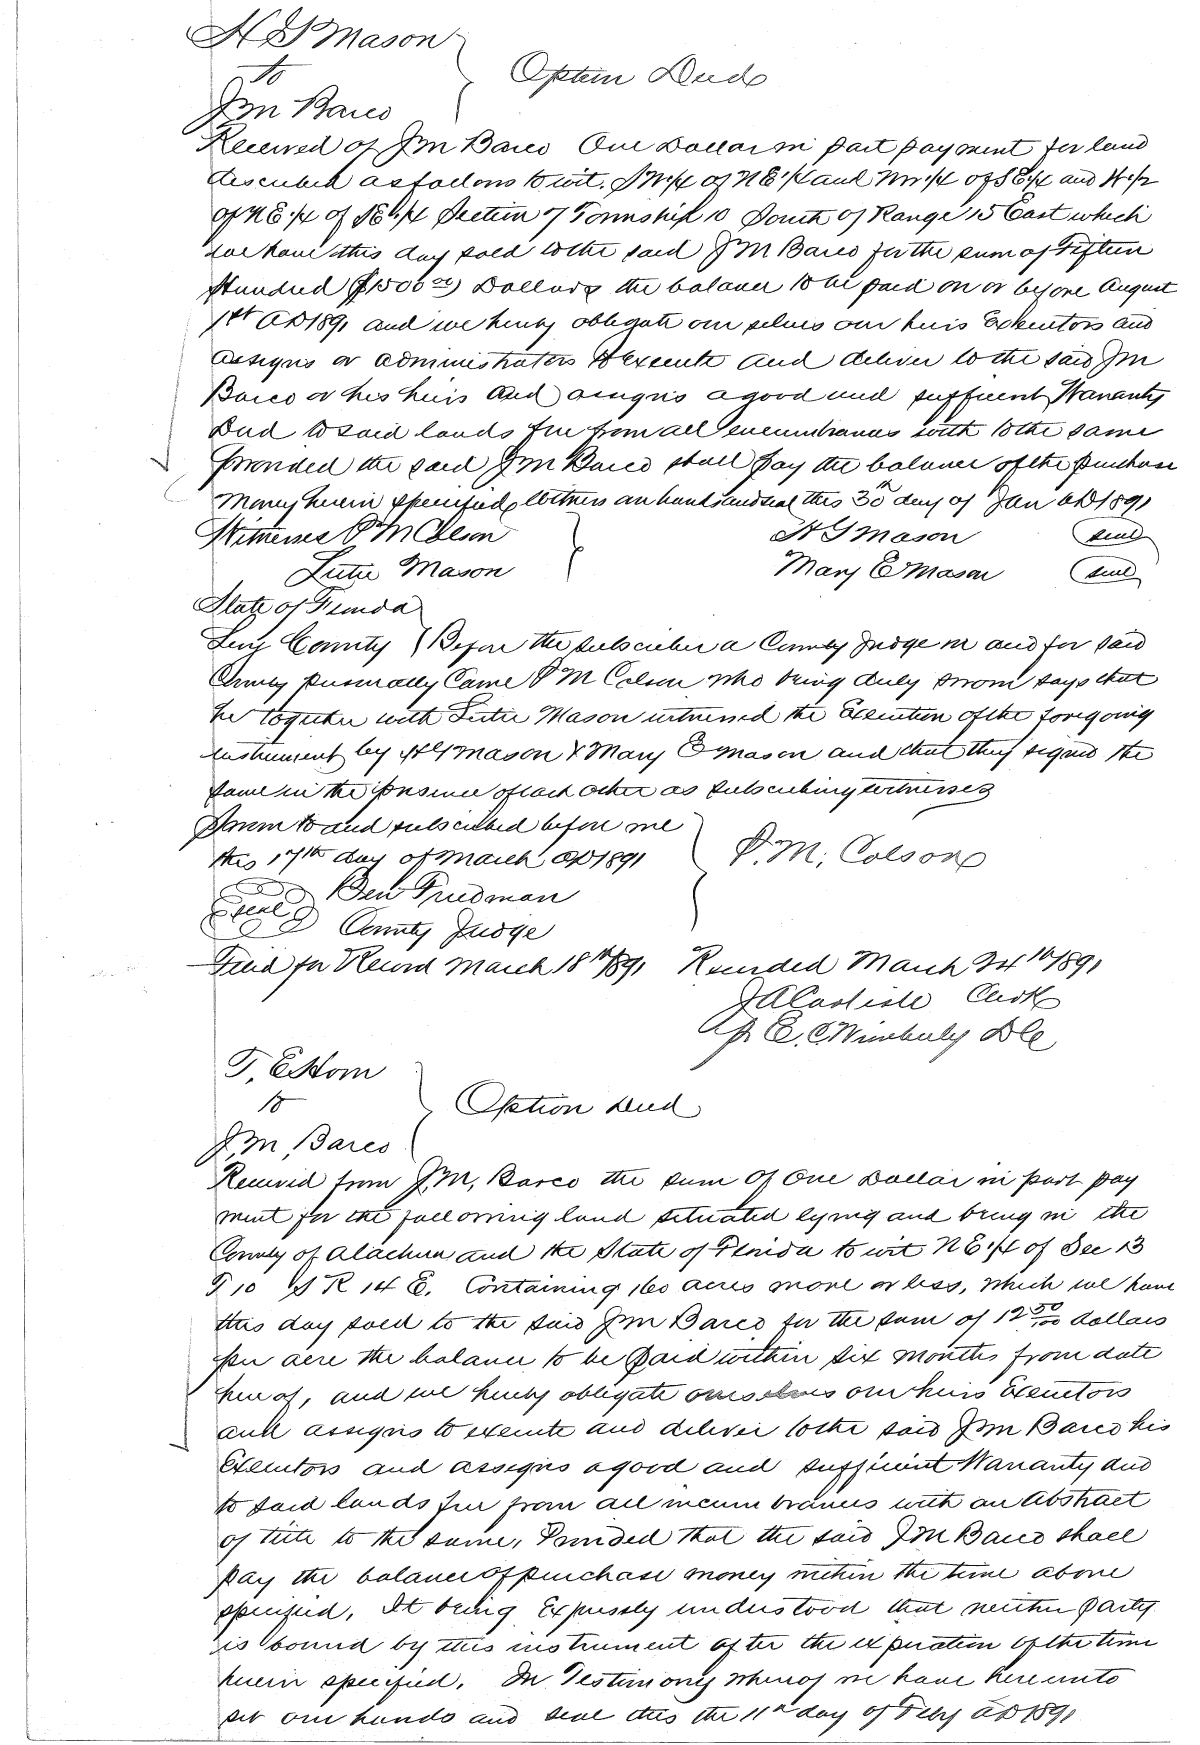 H G Mason
to
J M Barco
Option Deed
Received of J M Barco One Dollar in part payment for land
described as follows to wit. SW 1/4 of NE 1/4 and NW 1/4 of SE 1/4 and W 1/2
of NE 1/4 of SE 1/4 Section 7 Township 10 South of Range 15 East which
we have this day sold to the said J M Barco for the sum of Fifteen
Hundred ($1500 00) Dollars the balance to be paid on or before August
1st AD 1891 and we hereby obligate our selves our heirs Executors and
assigns or administrators to execute and deliver to the said J M
Barco or his heirs and assigns a good and sufficient Warranty
Deed to said lands free from all encumbrances with to the same
Provided the said J M Barco shall pay the balance of the purchase
money herein specified Witness our hands and seal this 30th day of Jan AD 1891
Witnesses P M Colson
Lutie Mason
H G Mason (seal)
Mary E Mason (seal)
State of Florida
Levy County Before the subscriber a County Judge in and for said
County personally Came P M Colson who being duly sworn says that
he together with Lutie Mason witnessed the Execution of the foregoing
instrument by H G Mason & Mary E Mason and that they signed the
same in the presence of each other as subscribing witnesses
Sworn to and subscribed before me
this 17th day of March AD 1891
P. M. Colson
(seal) Ben Friedman
County Judge
Filed for Record March 18th 1891 Recorded March 24th 1891
J A Carlisle Clerk
Pr E. C Wimberly DC
T. E Horn
to
J. M. Barco
Option Deed
Received from J. M. Barco the sum of One Dollar in part pay
ment for the following land situated lying and being in the
County of Alachua and the State of Florida to wit NE 1/4 of Sec 13
T 10 S R 14 E. Containing 160 acres more or less, which we have
this day sold to the said J M Barco for the sum of 12 50/100 dollars
per acre the balance to be paid within six months from date
hereof, and we hereby obligate ourselves our heirs Executors
and assigns to execute and deliver to the said J M Barco his
Executors and assigns a good and sufficient Warranty deed
to said lands free from all incumbrances with an Abstract
of title to the same, Provided that the said J M Barco shall
pay the balance of purchase money within the time above
specified. It being Expressly understood that neither party
is bound by this instrument after the expiration of the time
herein specified. In Testimony whereof we have hereunto
set our hands and seal this the 11th day of Feby AD 1891